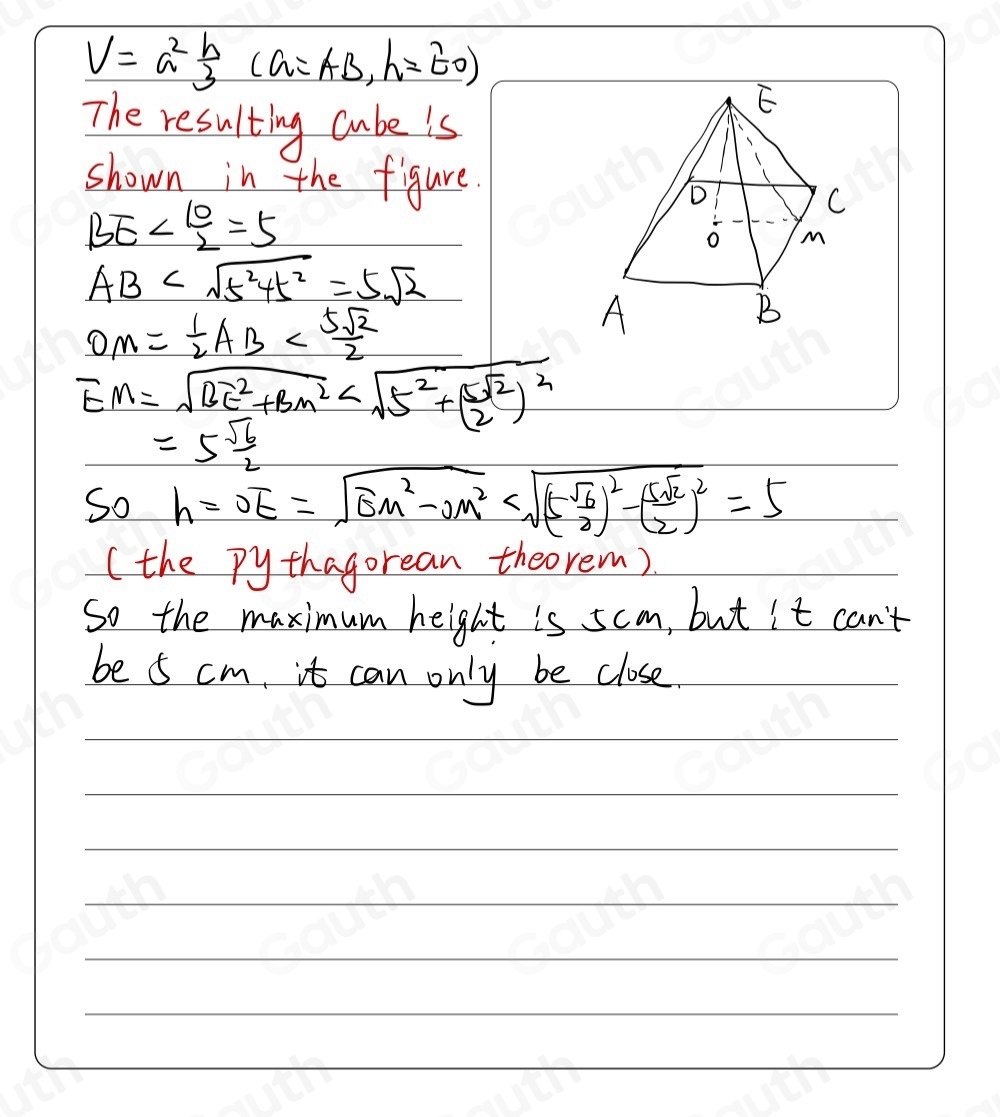 V = a² h/3 (a=AB, h=EO)
The resulting cube is
shown in the figure.
BE < 10/2 = 5
AB < √(5²+5²) = 5√2
OM = 1/2 AB < 5√2/2
EM = √(BE²+BM²) < √(5²+(5√2/2)²)
= 5 √6/2
So h = OE = √(EM²-OM²) < √((5 √6/2)²-(5√2/2)²) = 5
(the Pythagorean theorem).
So the maximum height is 5cm, but it can't
be 5 cm. it can only be close.
E
D
C
O
M
A
B
Gauth